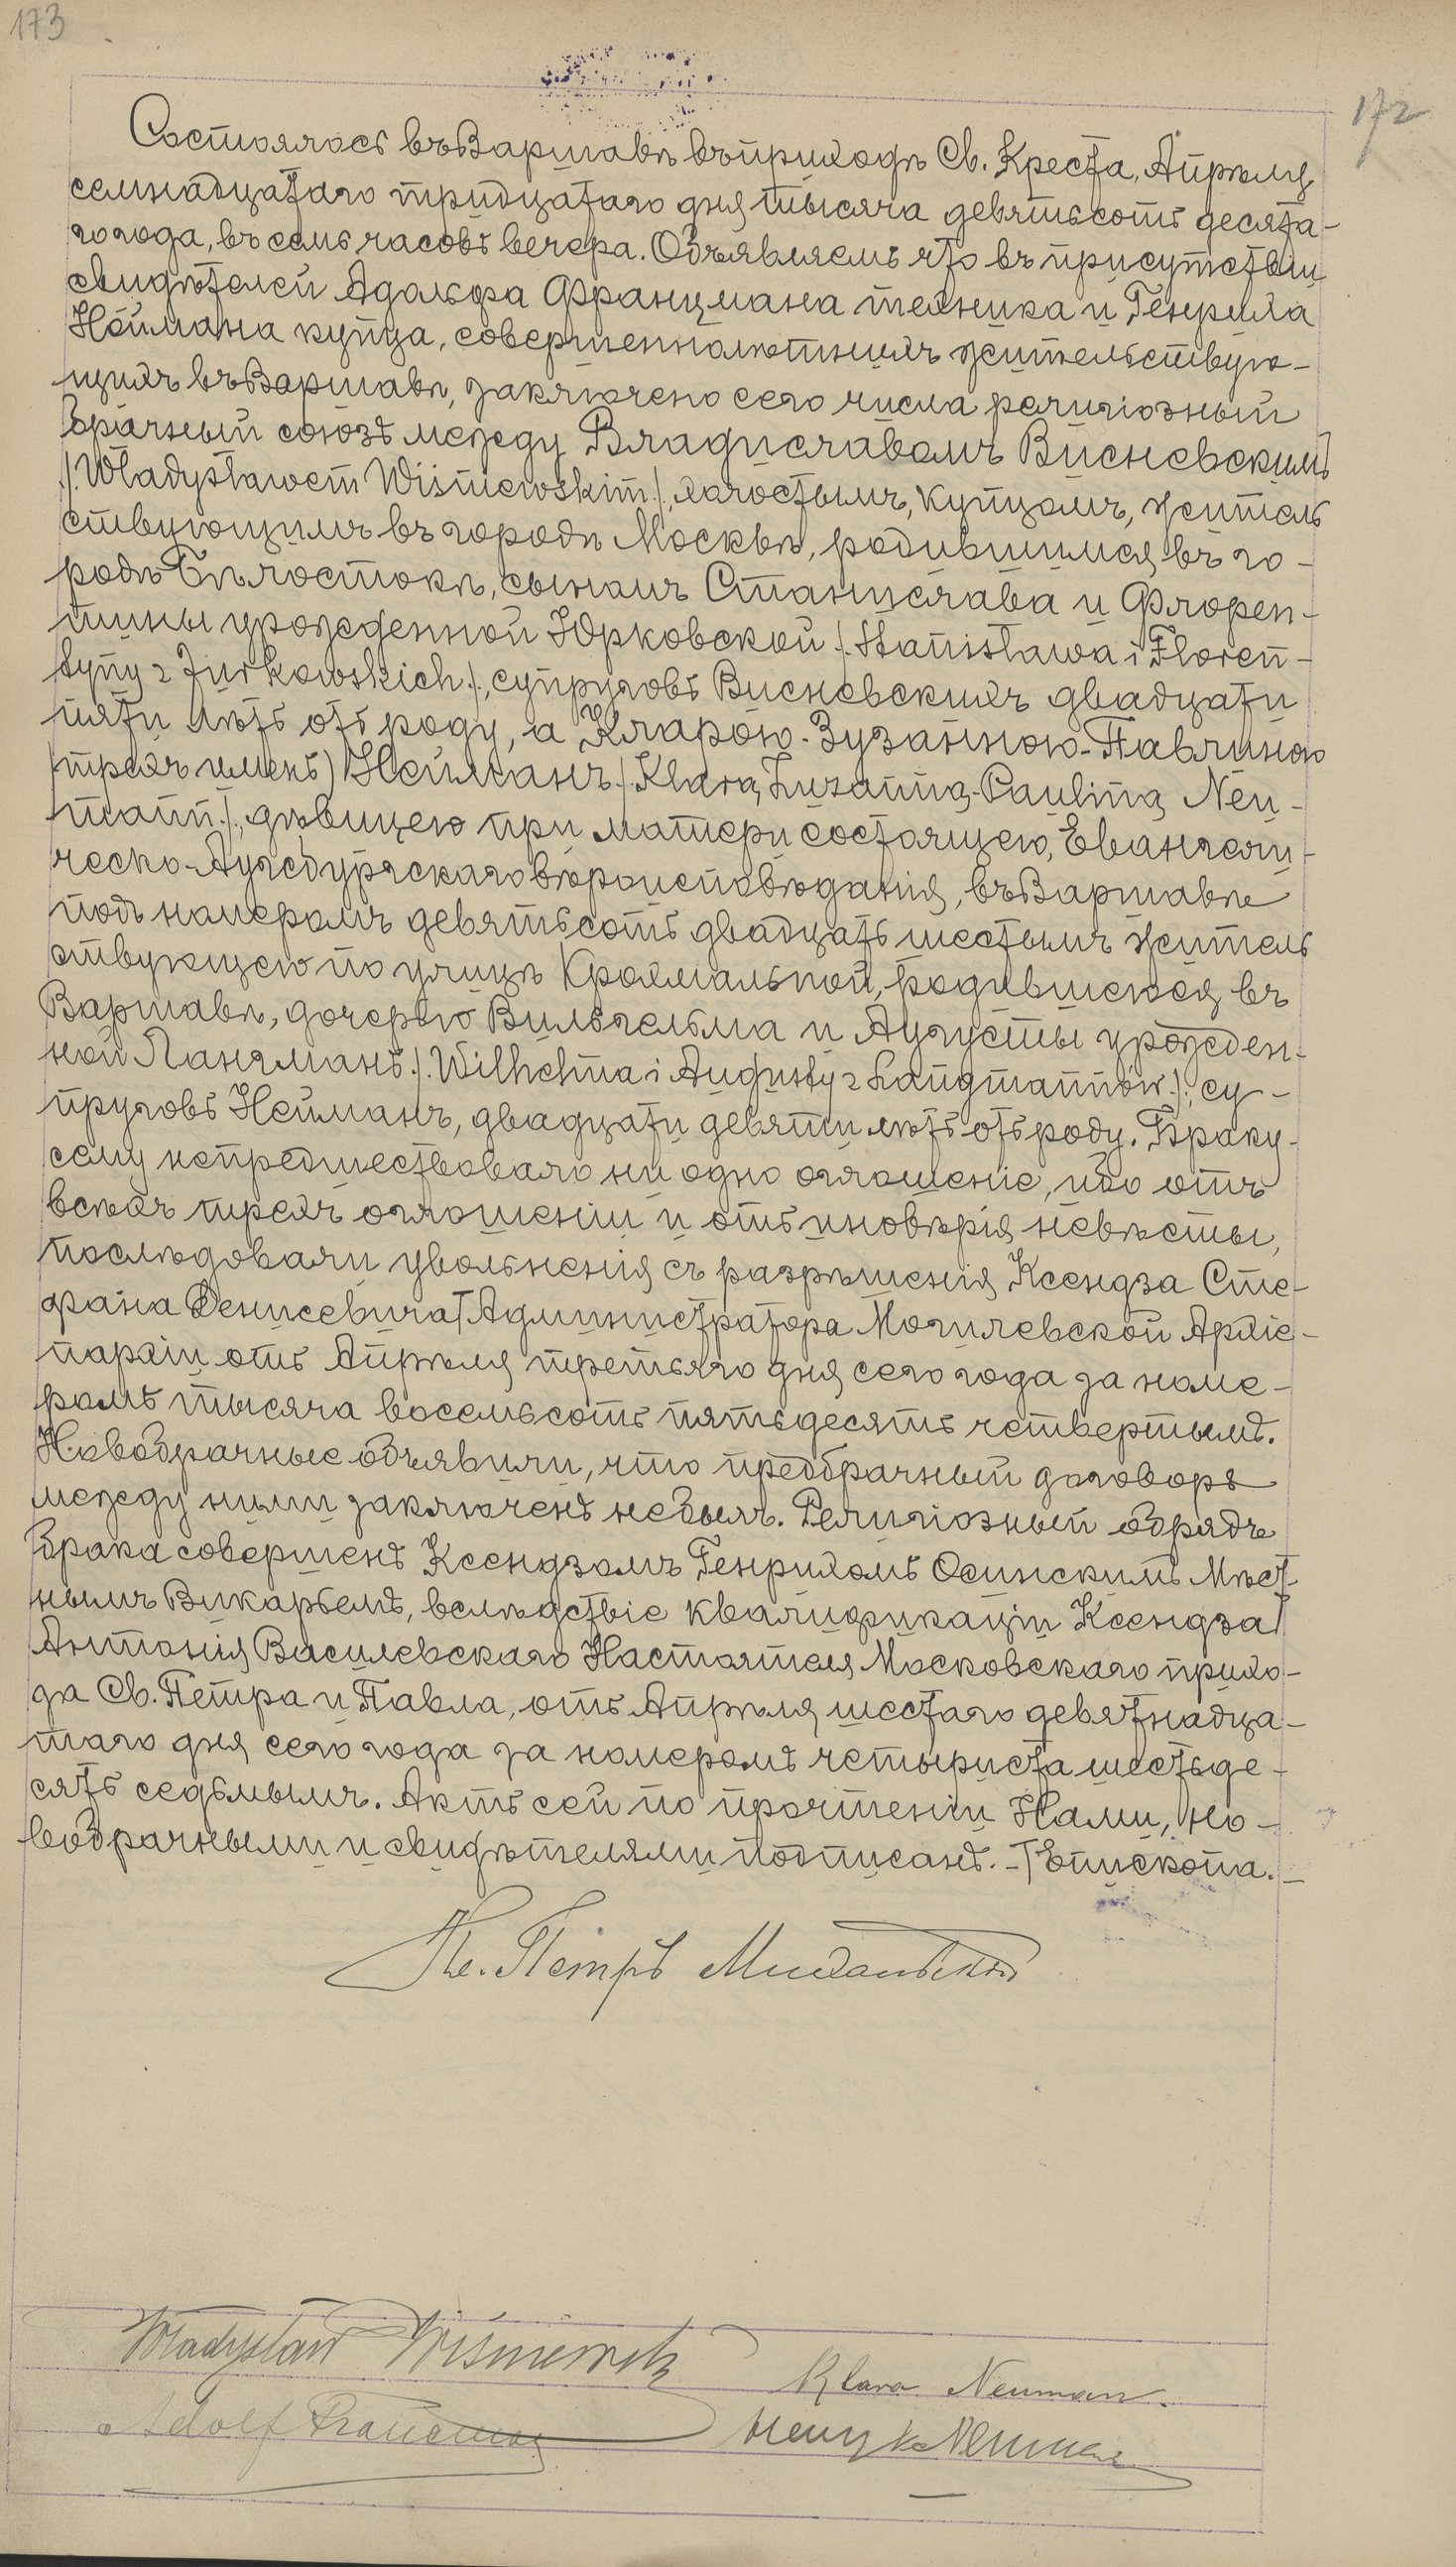 173
172
Состоялось въ Варшавѣ въ приходѣ Св. Креста, Апрѣля
семнадцатаго тридцатаго дня тысяча девятьсотъ десята-
го года, въ семь часовъ вечера. Объявляемъ что въ присутствіи
свидѣтелей Адольфа Францмана техника и Генриха
Неймана купца, совершеннолѣтнихъ жительствую-
щихъ въ Варшавѣ, заключено сего числа религіозный
брачный союзъ между Владиславомъ Висневскимъ
/.Władysławem Wiśniewskim./, холостымъ, купцомъ, житель
ствующимъ въ городѣ Москвѣ, родившимся въ го-
родѣ Бѣлостокѣ, сыномъ Станислава и Флорен-
тины урожденной Юрковской /.Stanisława i Floren-
tyny z Jurkowskich./, супруговъ Висневскихъ двадцати
пяти лѣтъ отъ роду, а Кларою-Зузанною-Павлиною
(трехъ именъ) Нейманъ /.Klarą Zuzanną-Pauliną Neu-
mann./, дѣвицею при матери состоящею, Евангели-
ческо-Аугсбургскаго вѣроисповѣданія, въ Варшавѣ
подъ номеромъ девятьсотъ двадцать шестымъ житель
ствующею по улицѣ Крохмальной, родившеюся въ
Варшавѣ, дочерью Вильгельма и Аугусты урожден-
ной Лангманъ /.Wilhelma i Augusty z Langmannów./, су-
пруговъ Нейманъ, двадцати девяти лѣтъ отъ роду. Браку
сему непредшествовало ни одно оглашеніе, ибо отъ
всѣхъ трехъ оглашеніи и отъ иновѣрія невѣсты,
послѣдовали увольненія съ разрѣшенія Ксендза Сте-
фана Денисевича Т Администратора Могилевской Архіе-
пархіи отъ Апрѣля третьяго дня сего года за номе-
ромъ тысяча восемьсотъ пятьдесятъ четвертымъ.
Новобрачные объявили, что предбрачный договоръ
между ними заключенъ небылъ. Религіозный обрядъ
брака совершенъ Ксендзомъ Генрихомъ Осинскимъ Мѣст-
нымъ Викаріемъ, вслѣдствіе квалификаціи Ксендза
Антонія Василевскаго Настоятеля Московскаго прихо-
да Св. Петра и Павла, отъ Апрѣля шестаго девятнадца-
таго дня сего года за номеромъ четыриста шестьде-
сятъ седьмымъ. Актъ сей по прочтеніи Нами, но-
вобрачными и свидѣтелями подписанъ. -Т Епископа.-
Кс. Петръ
Władysław Wiśniewski
Klara Neuman.
Adolf Francman
Henryk Neuman